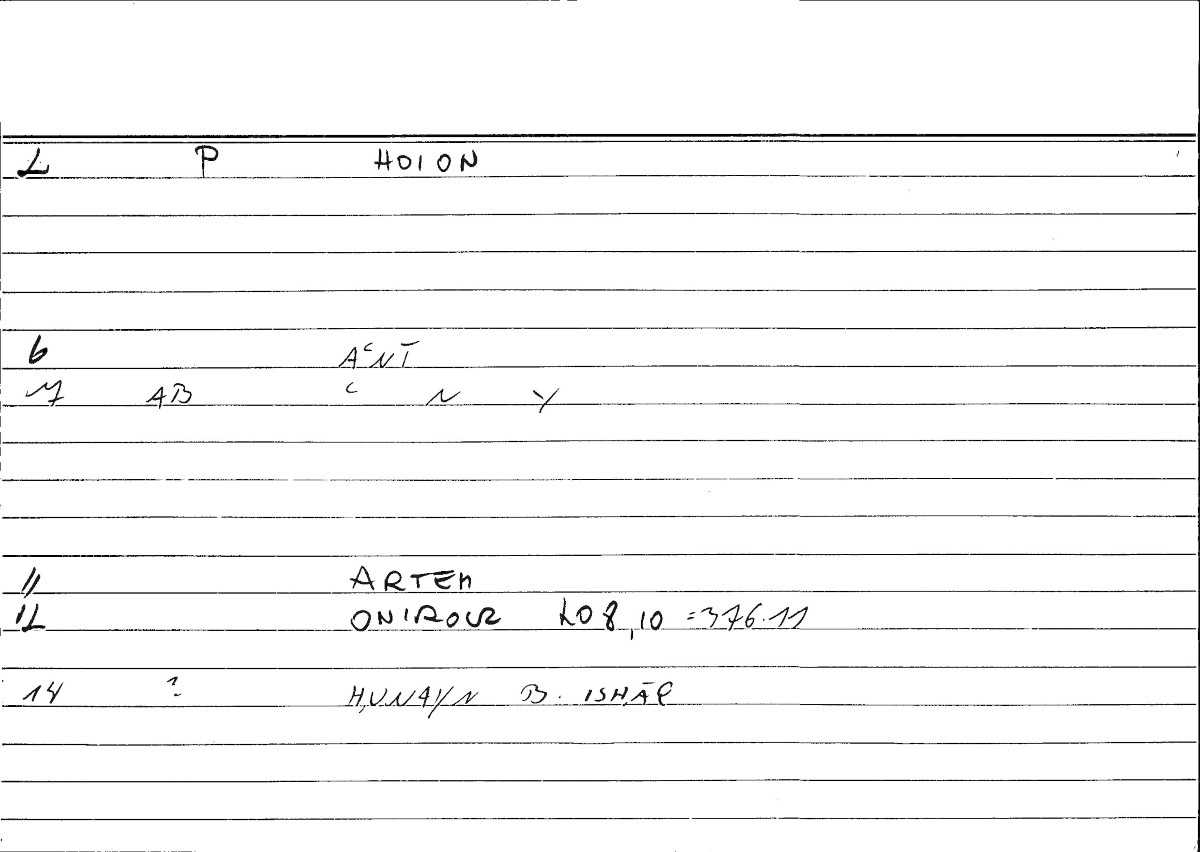 2 P HOION
6 AʿNĪ
7 AB ʿ N Y
11 ARTEM
12 ONIROCR 208,10 =376.11
14 ? ḤUNAYN B. ISḤĀQ